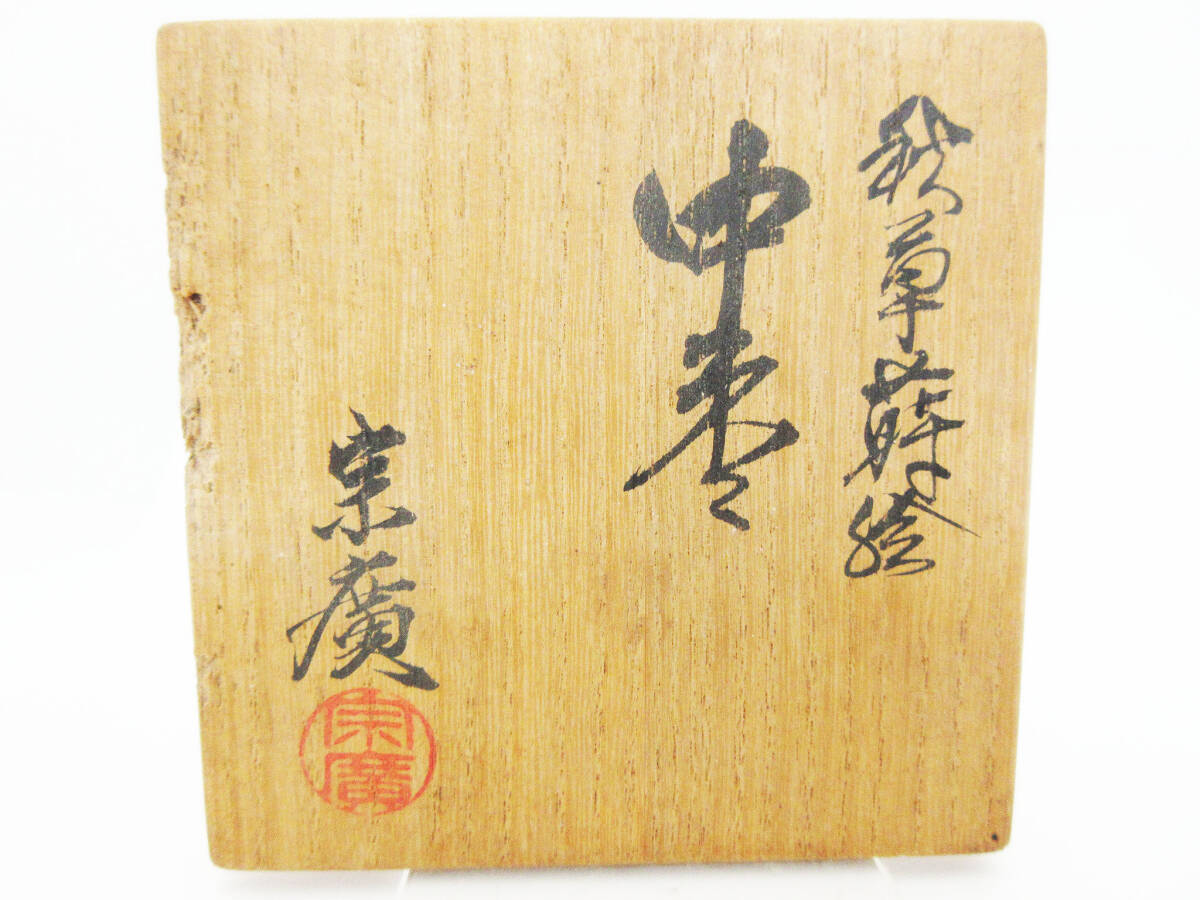 秋草蒔絵
中棗
宗廣
宗廣